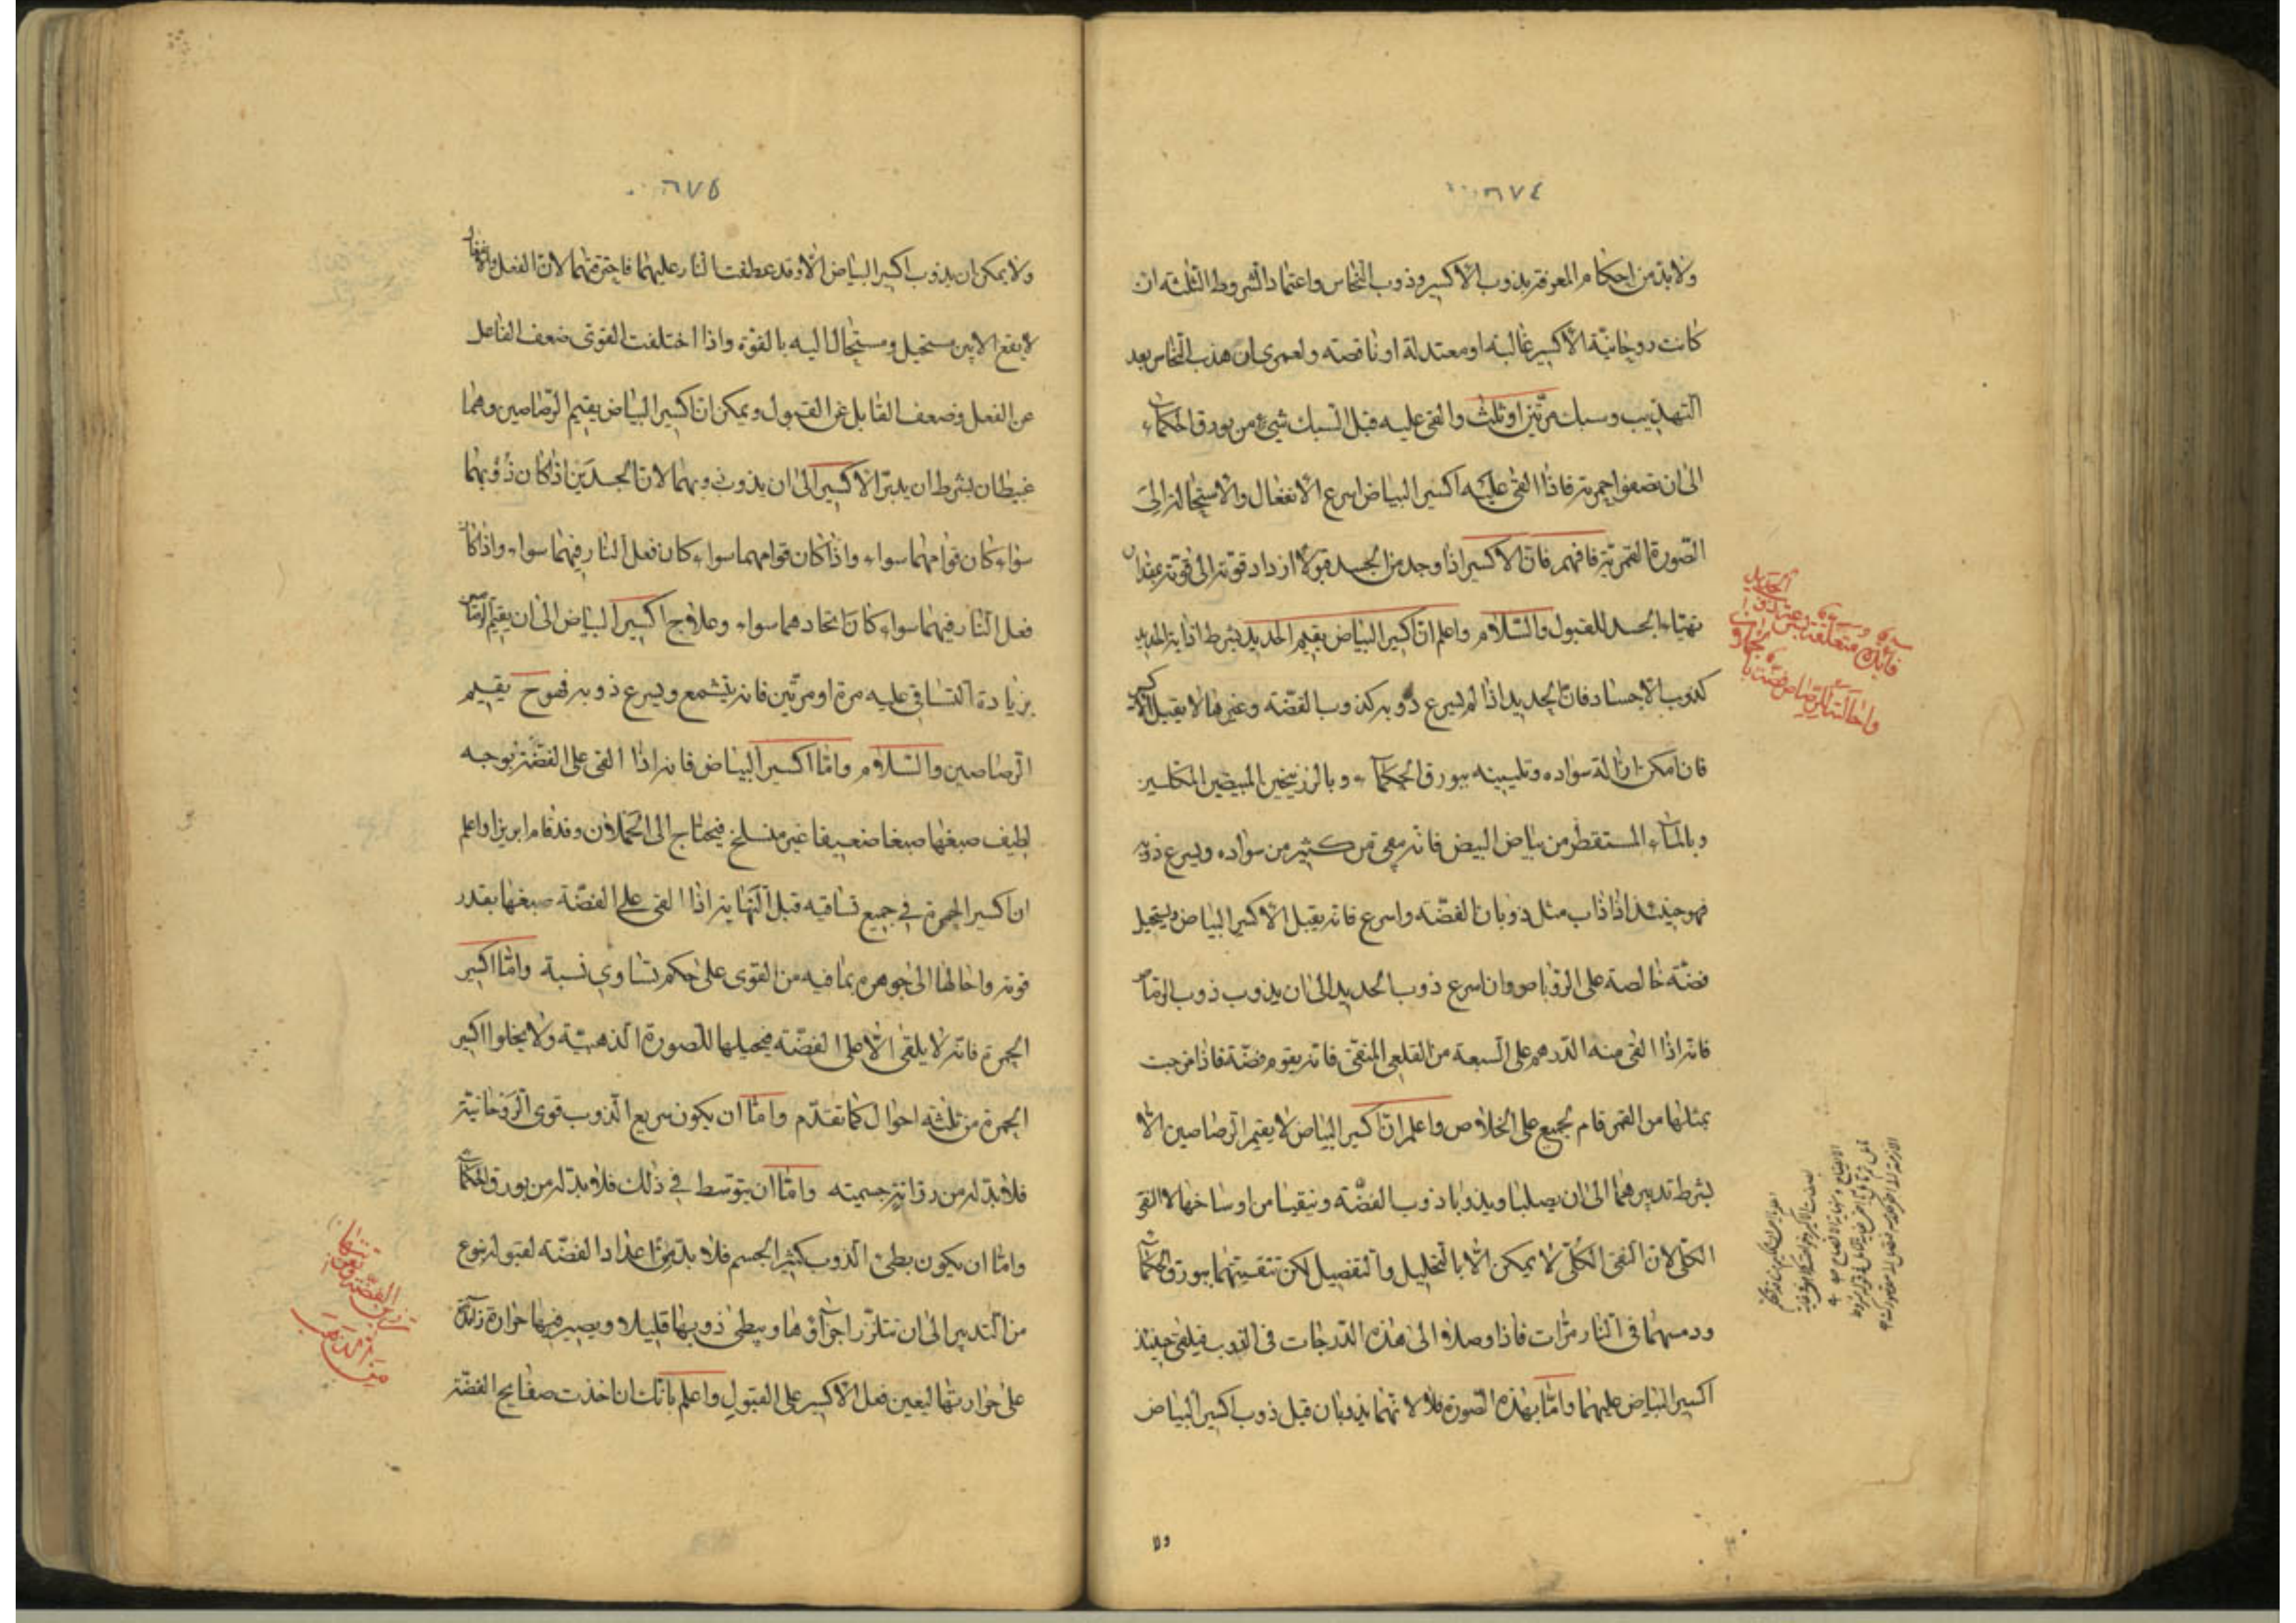 ٦٧٤
ولابد من احكام المعرفة بذوب الاكسير وذوب النحاس واعتماد الشروط الثلثة ان
كانت روحانية الاكسير غالبة او معتدلة او ناقصة ولعمرى ان هذب النحاس بعد
التهذيب وسبك مرتين او ثلث والقى عليه قبل السبك شئ من بورق الحكماء
الى ان تصفوا حمرته فاذا القى عليه اكسير البياض اسرع الانفعال والاستحالة الى
الصورة القمرية فافهم فان الاكسير اذا وجد من الجسد قبولا ازداد قوته الى قوته بمقدار
تهياء الجسد للقبول والسلام واعلم ان اكسير البياض يقيم الحديد بشرط اذابة الحديد
كذوب الاجساد فان الحديد اذا لم يسرع ذوبه كذوب الفضة وغيرها لا يقبل الاكسير
فان امكن ازالة سواده وتليينه ببورق الحكماء وبالزرنيخين المبيضين المكلسين
وبالماء المستقطر من بياض البيض فانه ينقى من كثير من سواده ويسرع ذوبه
فهو حينئذ اذا ذاب مثل ذوبان الفضة واسرع فانه يقبل الاكسير البياض ويستحيل
فضة خالصة على الروباص وان اسرع ذوب الحديد الى ان يذوب ذوب الرصاص
فانه اذا القى منه الدرهم على السبعة من القلعى المنقى فانه يقوم فضة فاذا مزجت
بمثلها من القمر قام الجميع على الخلاص واعلم ان اكسير البياض لا يقيم الرصاصين الا
بشرط تدبيرهما الى ان يصلبا ويذوبا ذوب الفضة وينقيا من اوساخها لا النقى
الكلى لان النقى الكلى لا يمكن الا بالتحليل والتفصيل لكن تنقيتهما ببورق الحكماء
ودمسهما فى النار مرات فاذا وصلا الى هذه الدرجات فى الذوب فيلقى حينئذ
اكسير البياض عليهما واما بهذه الصورة فلا لانهما يذوبان قبل ذوب اكسير البياض
ولا
٦٧٥
ولا يمكن ان يذوب اكسير البياض الا وقد عطفت النار عليهما فاحترقتهما لان الفعل والانفعال
لا يقع الا بين مستحيل ومستحال اليه بالقوة واذا اختلفت القوى ضعف الفاعل
عن الفعل وضعف القابل عن القبول ويمكن ان اكسير البياض يقيم الرصاصين وهما
عبيطان بشرط ان يدبر الاكسير الى ان يذوب ذوبهما لان الجسدين اذا كان ذوبهما
سواء كان قوامهما سواء واذا كان قوامهما سواء كان فعل النار فيهما سواء واذا كان
فعل النار فيهما سواء كان اتحادهما سواء وعلاج اكسير البياض الى ان يقيم الرصاصين
بزيادة التساقى عليه مرة او مرتين فانه يتشمع ويسرع ذوبه فهو ح يقيم
الرصاصين والسلام واما اكسير البياض فانه اذا القى على الفضة بوجه
لطيف صبغها صبغا ضعيفا غير منسلخ فيحتاج الى الحملان وقد قام ابريزا واعلم
ان اكسير الحمرة فى جميع تساقيه قبل النهاية اذا القى على الفضة صبغها بقدر
قوته واحالها الى جوهره بما فيه من القوى على حكم تساوى نسبة واما اكسير
الحمرة فانه لا يلقى الا على الفضة فيحيلها للصورة الذهبية ولا يخلوا اكسير
الحمرة من ثلثة احوال كما تقدم واما ان يكون سريع الذوب قوى الروحانية
فلا بد له من رزانة جسميته واما ان يتوسط فى ذلك فلا بد له من بورق الحكماء
واما ان يكون بطئ الذوب كثير الجسم فلا بد من اعداد الفضة لقبوله بنوع
من التدبير الى ان تتلزز اجزاؤها ويبطى ذوبها قليلا ويصير فيها حرارة زائدة
على حرارتها ليعين فعل الاكسير على القبول واعلم بانك ان اخذت صفايح الفضة